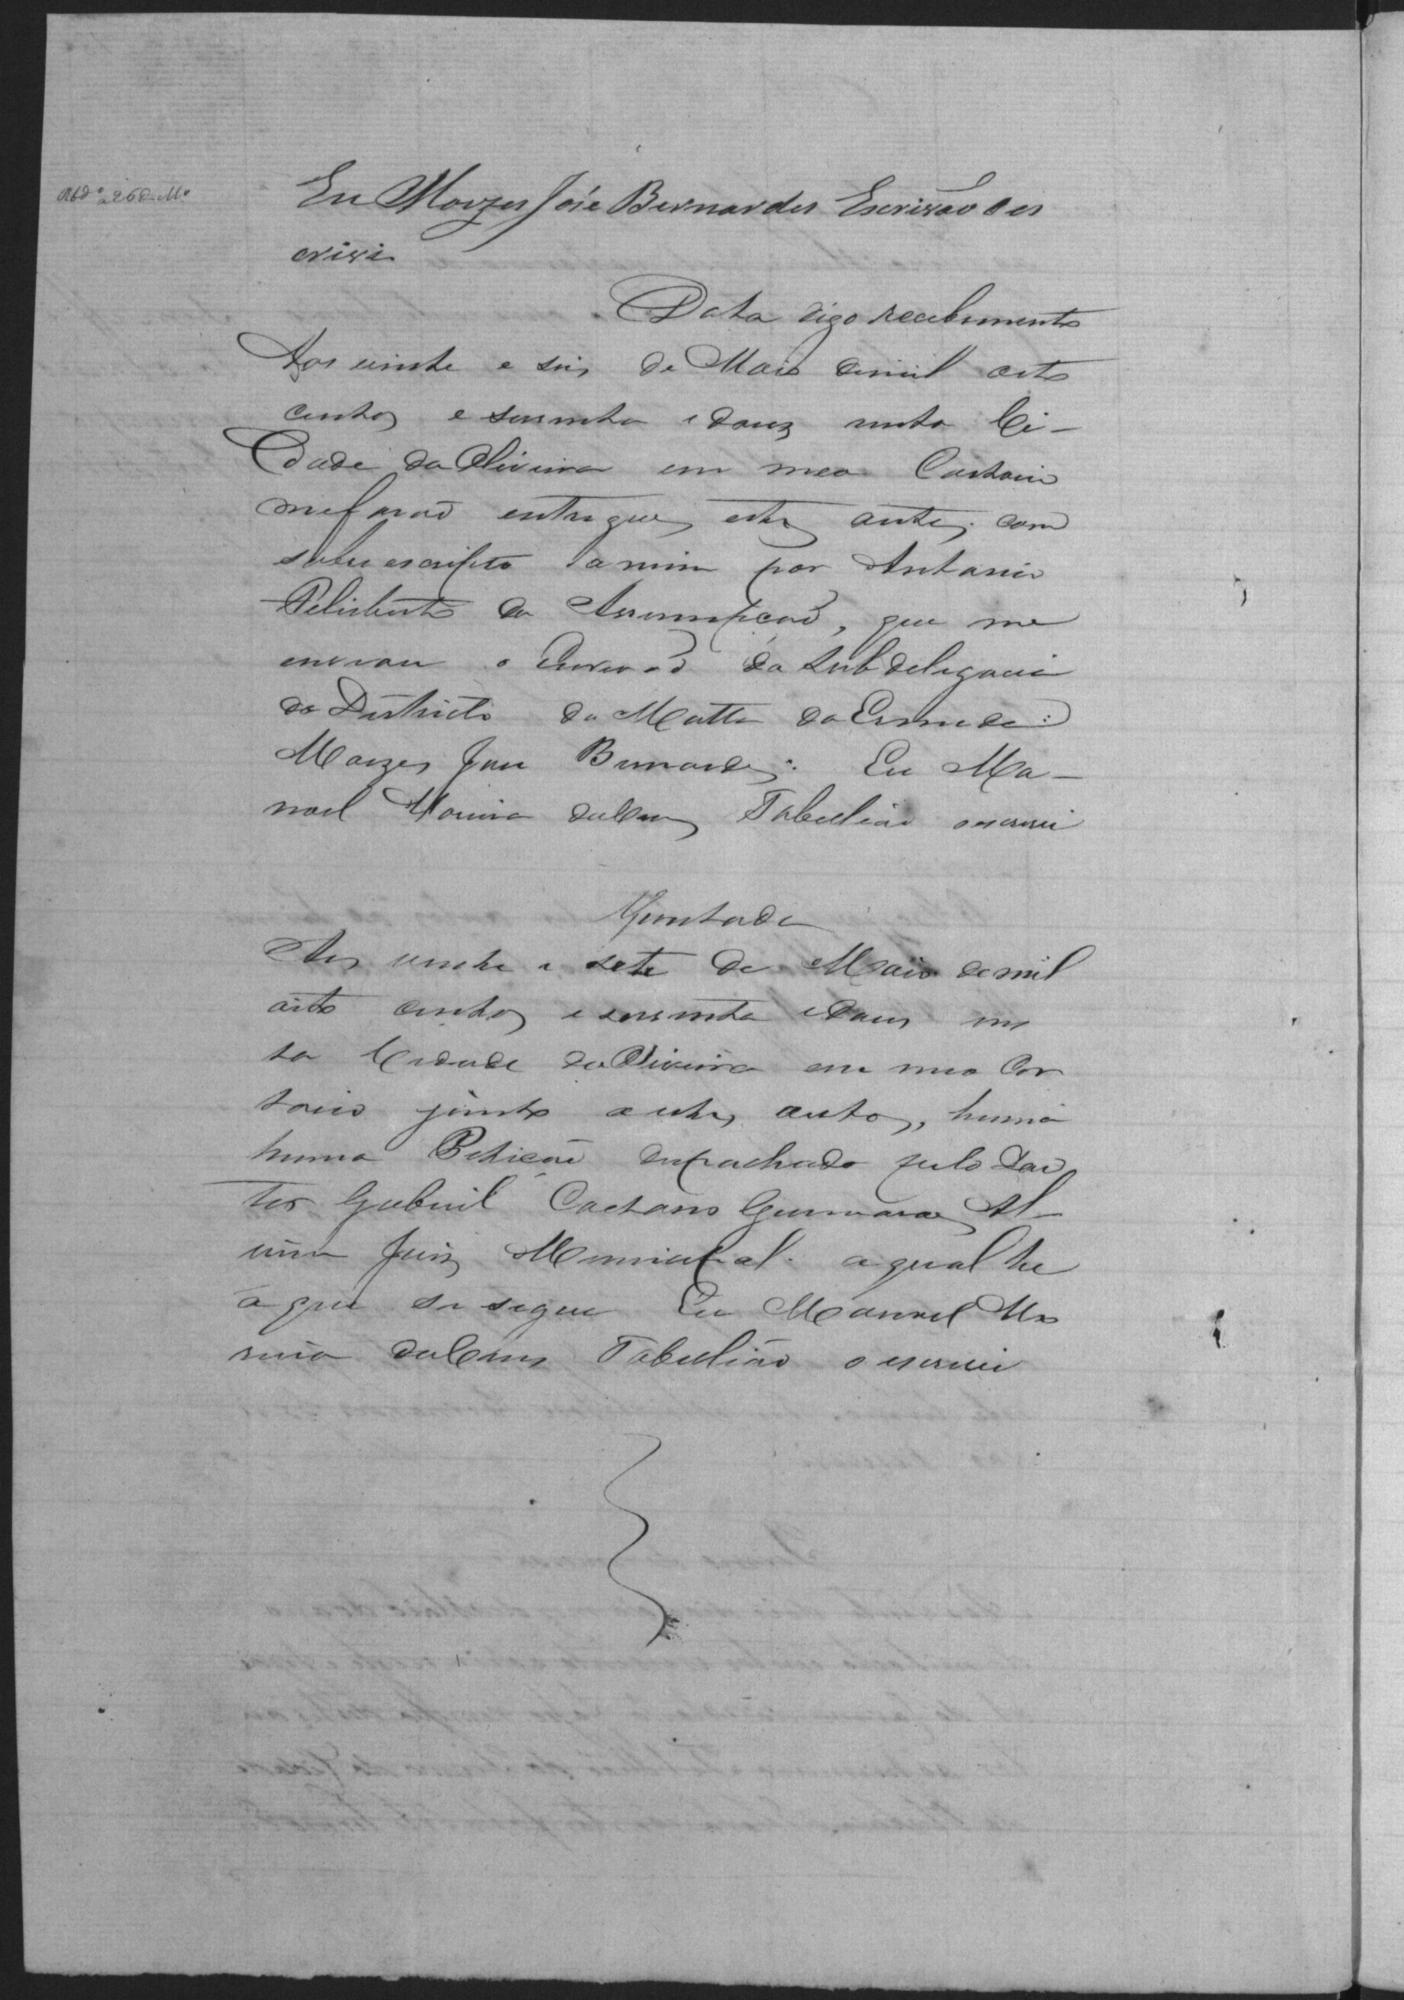 Eu Moyzes José Bernardes Escrivão o es
crivi
Data digo recebimento
Aos vinte e seis de Maio de mil oito
centos e secenta e dous nesta Ci-
dade da Oliveira em meo Cartorio
me forao entregues estes autos com
sobrescripto a mim por Antonio
Felisberto da Assumpcao, que me
enviou o Escrivao da Subdelegacia
do Districto da Matta da Ermida:
Moyzes Jose Bernardes: Eu Ma-
noel Moreira da Cruz Tabeliao o escrivi
Juntada
Aos vinte e sete de Maio de mil
oito centos e secenta e dous nes
ta Cidade da Oliveira em meo Car
torio junto a estes autos, huma
huma Peticao despachada pelo Dou
tor Gabriel Caetano Guimaraes Al-
vim Juiz Municipal a qual he
a que se segue Eu Manoel Mo
reira da Cruz Tabeliao o escrivi